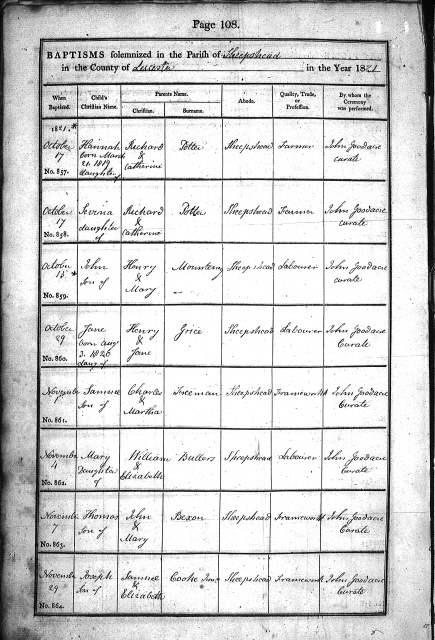 Page 108.
BAPTISMS solemnized in the Parish of Sheepshead
in the County of Leicester in the Year 1821
When Baptized. Child's Christian Name. Parents Name. Abode. Quality, Trade, or Profession. By whom the Ceremony was performed.
Christian. Surname.
1821.
October 17 Hannah born March 21. 1819 daughter of Richard & Catherine Potter Sheepshead Farmer John Goodacre curate
No. 857.
October 17 daughter of Richard & Catherine Potter Sheepshead Farmer John Goodacre curate
No. 858.
October John Son of Henry & Mary Sheepshead Labourer John Goodacre curate
No. 859.
October 29 Jane born Aug 3. daug. of Henry & Jane Grice Sheepshead Labourer John Goodacre Curate
No. 860.
November Samuel Son of Charles & Martha Freeman Sheepshead John Goodacre Curate
No. 861.
November 4 Mary Daughter of William & Elizabeth Butlers Sheepshead Labourer John Goodacre Curate
No. 862.
November 7 Thomas Son of John & Mary Bexon Sheepshead John Goodacre Curate
No. 863.
November 29 Joseph Son of Samuel & Elizabeth Cooke Sheepshead John Goodacre Curate
No. 864.